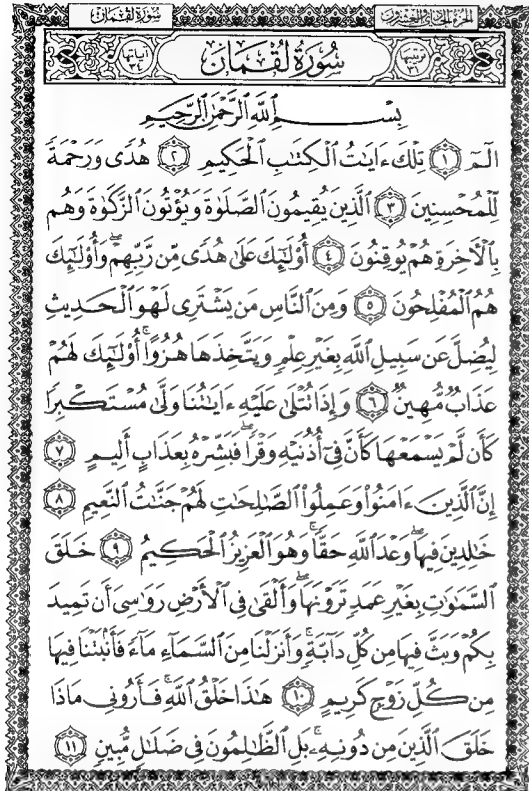 الجزء الحادي والعشرون سورة لقمان
ترتيبها ٣١ سُورَةُ لُقْمَانَ آياتها ٣٤
بِسْمِ ٱللَّهِ ٱلرَّحْمَٰنِ ٱلرَّحِيمِ
الٓمٓ ١ تِلْكَ ءَايَٰتُ ٱلْكِتَٰبِ ٱلْحَكِيمِ ٢ هُدًى وَرَحْمَةً
لِّلْمُحْسِنِينَ ٣ ٱلَّذِينَ يُقِيمُونَ ٱلصَّلَوٰةَ وَيُؤْتُونَ ٱلزَّكَوٰةَ وَهُم
بِٱلْأَخِرَةِ هُمْ يُوقِنُونَ ٤ أُو۟لَٰٓئِكَ عَلَىٰ هُدًى مِّن رَّبِّهِمْ ۖ وَأُو۟لَٰٓئِكَ
هُمُ ٱلْمُفْلِحُونَ ٥ وَمِنَ ٱلنَّاسِ مَن يَشْتَرِى لَهْوَ ٱلْحَدِيثِ
لِيُضِلَّ عَن سَبِيلِ ٱللَّهِ بِغَيْرِ عِلْمٍ وَيَتَّخِذَهَا هُزُوًا ۚ أُو۟لَٰٓئِكَ لَهُمْ
عَذَابٌ مُّهِينٌ ٦ وَإِذَا تُتْلَىٰ عَلَيْهِ ءَايَٰتُنَا وَلَّىٰ مُسْتَكْبِرًا
كَأَن لَّمْ يَسْمَعْهَا كَأَنَّ فِىٓ أُذُنَيْهِ وَقْرًا ۖ فَبَشِّرْهُ بِعَذَابٍ أَلِيمٍ ٧
إِنَّ ٱلَّذِينَ ءَامَنُوا۟ وَعَمِلُوا۟ ٱلصَّٰلِحَٰتِ لَهُمْ جَنَّٰتُ ٱلنَّعِيمِ ٨
خَٰلِدِينَ فِيهَا ۖ وَعْدَ ٱللَّهِ حَقًّا ۚ وَهُوَ ٱلْعَزِيزُ ٱلْحَكِيمُ ٩ خَلَقَ
ٱلسَّمَٰوَٰتِ بِغَيْرِ عَمَدٍ تَرَوْنَهَا ۖ وَأَلْقَىٰ فِى ٱلْأَرْضِ رَوَٰسِىَ أَن تَمِيدَ
بِكُمْ وَبَثَّ فِيهَا مِن كُلِّ دَآبَّةٍ ۚ وَأَنزَلْنَا مِنَ ٱلسَّمَآءِ مَآءً فَأَنۢبَتْنَا فِيهَا
مِن كُلِّ زَوْجٍ كَرِيمٍ ١٠ هَٰذَا خَلْقُ ٱللَّهِ فَأَرُونِى مَاذَا
خَلَقَ ٱلَّذِينَ مِن دُونِهِۦ ۚ بَلِ ٱلظَّٰلِمُونَ فِى ضَلَٰلٍ مُّبِينٍ ١١